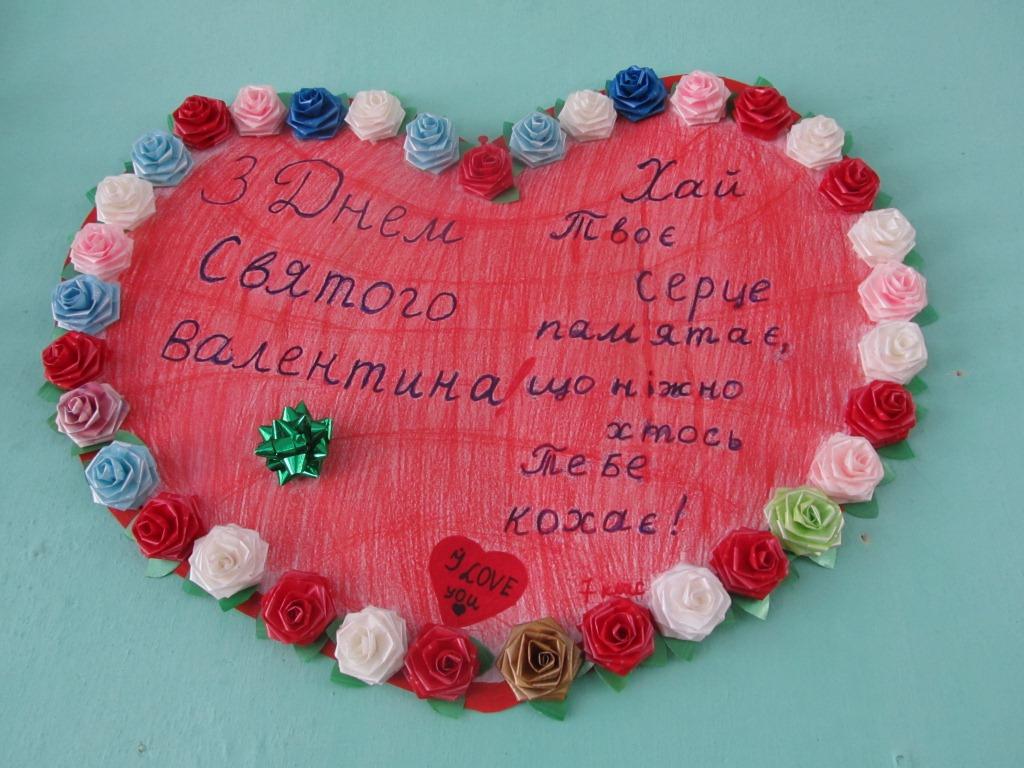 З Днем
Святого
Валентина!
Хай
Твоє
серце
памятає,
що ніжно
хтось
Тебе
кохає!
I LOVE
you
7 клас